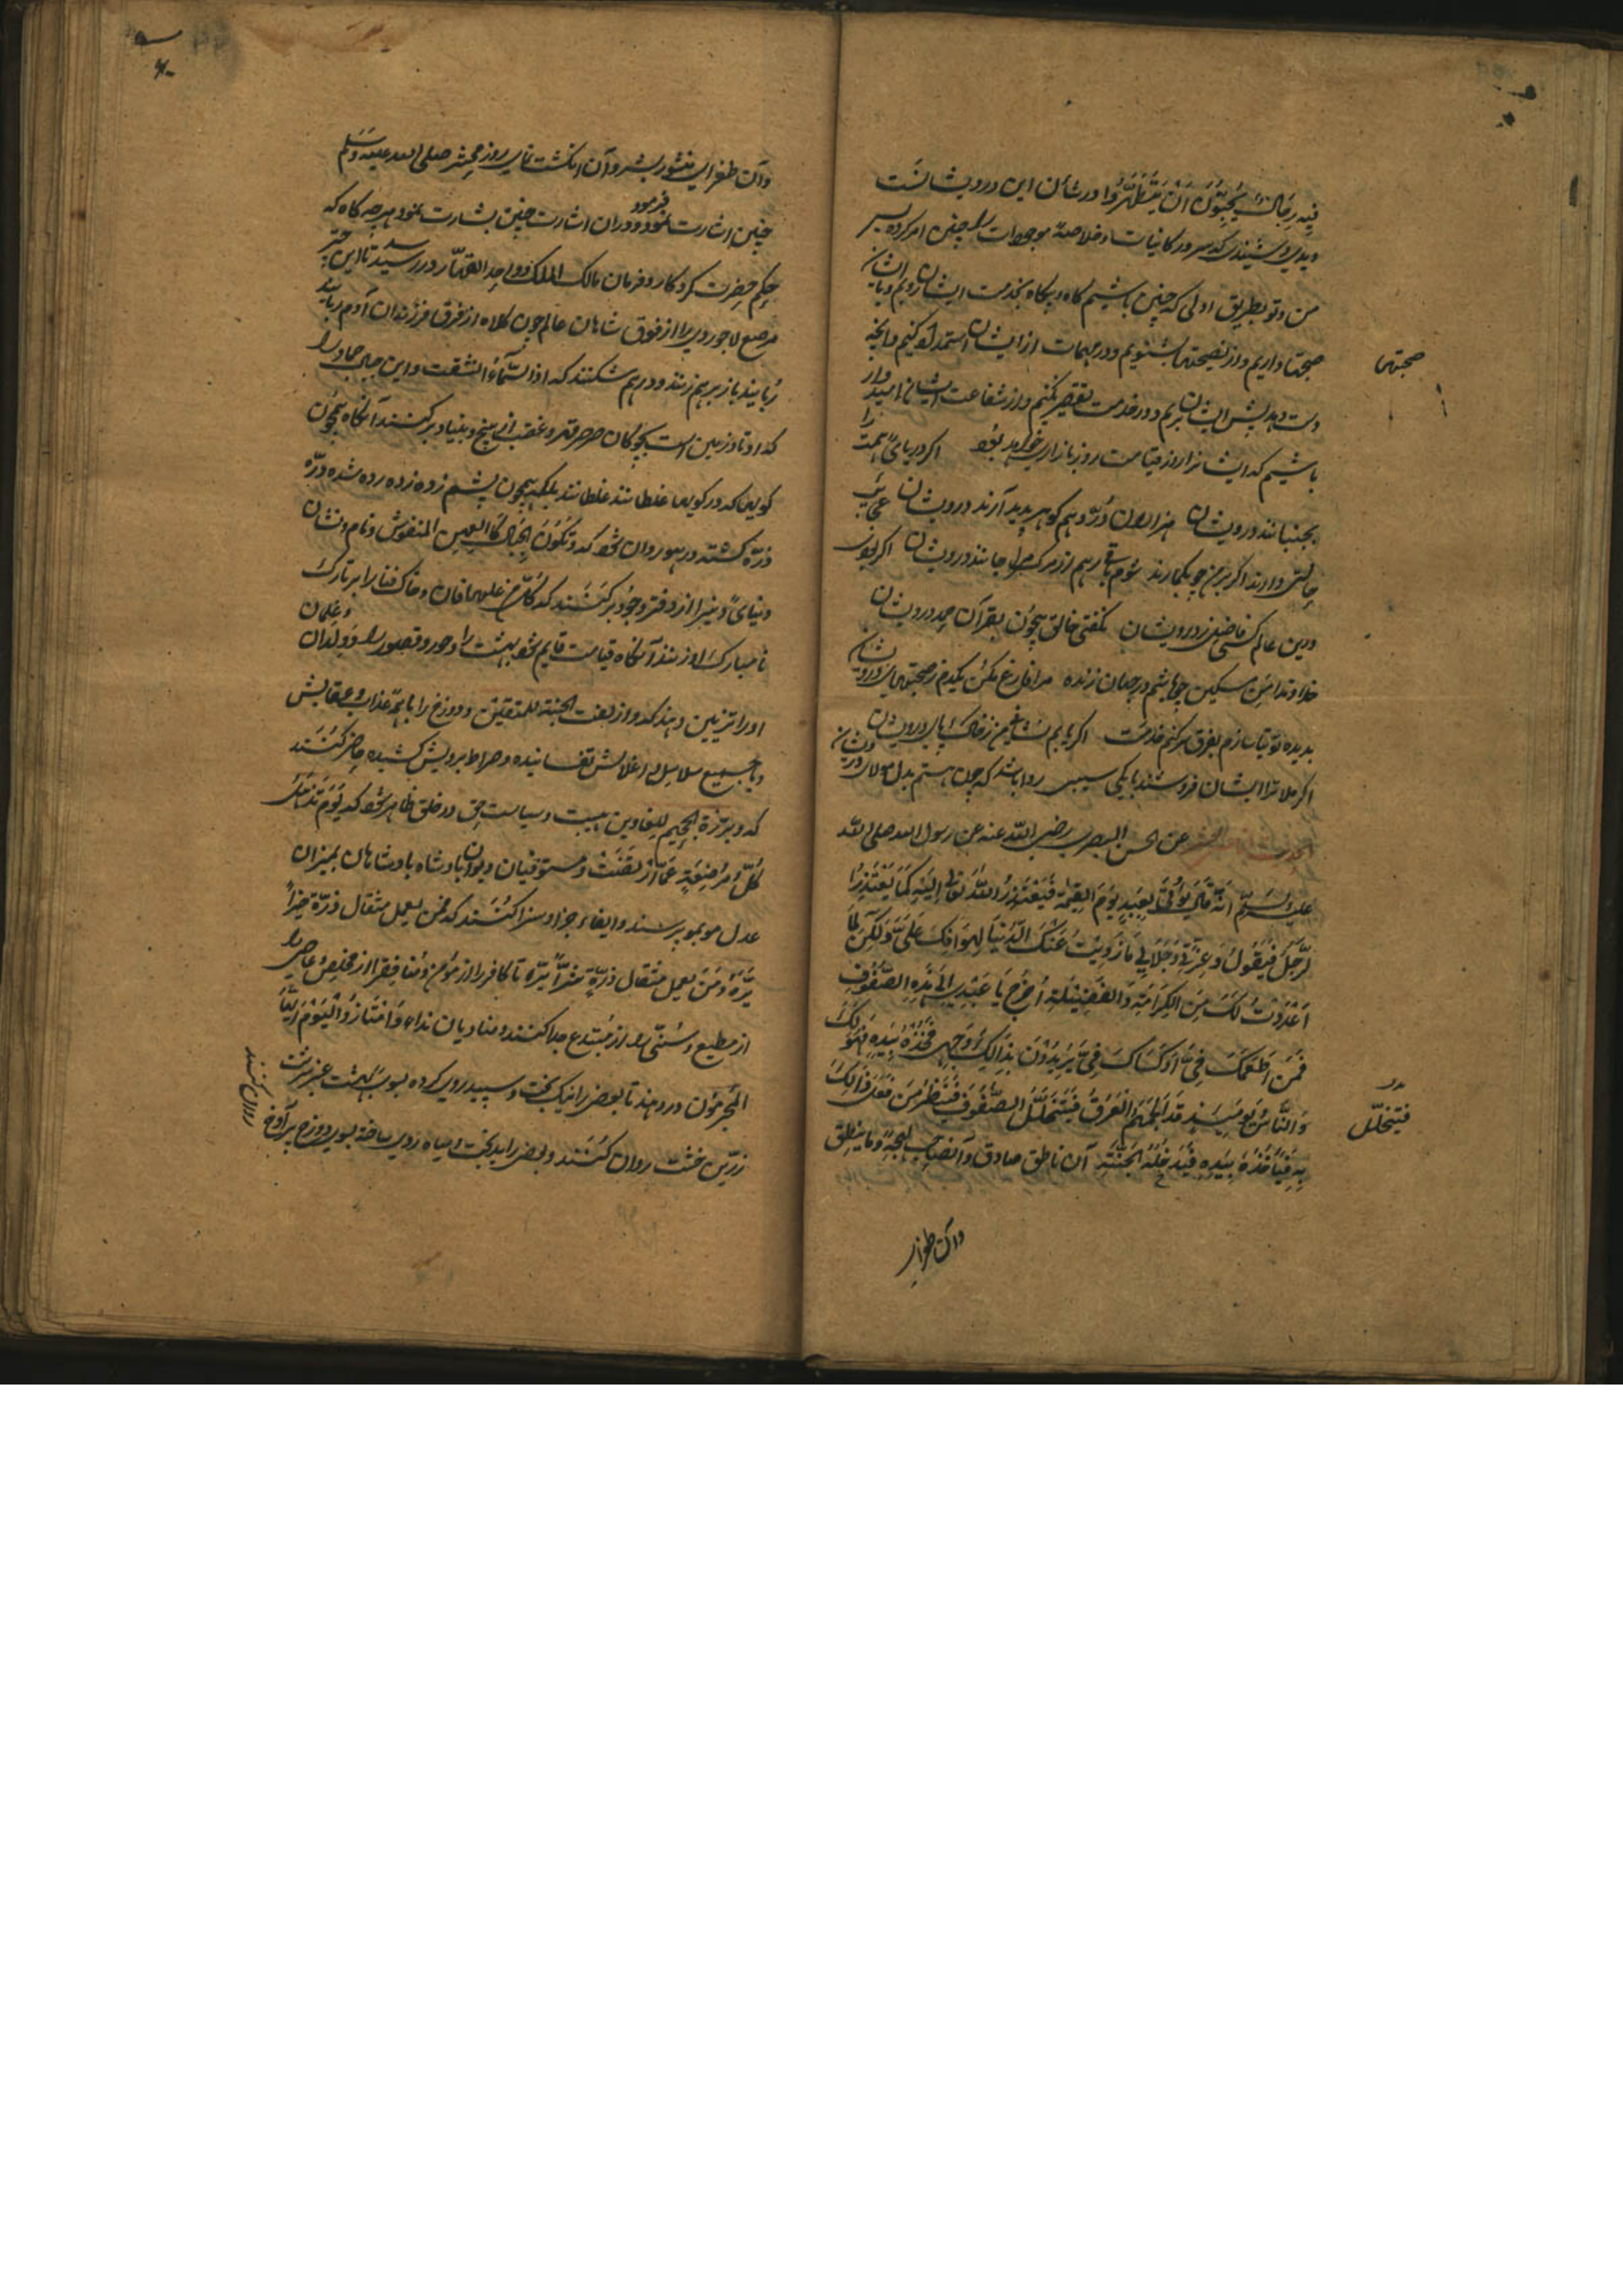 فیه رجال یحبون ان یتطهروا در شان این درویشانست
دیدی و شنیدی که سرور کاینات و خلاصهٔ موجودات را چنین امر کرده پس
من و تو بطریق اولی که چنین باشیم گاه و بیگاه بخدمت ایشان رویم و با ایشان
صحبتها داریم و از نصیحتها بشنویم و در مهمات از ایشان استمداد کنیم و آنچه
دست دهد پیش ایشان بریم و در خدمت تقصیر نکنیم و از شفاعت ایشان امیدوار
باشیم که ایشانرا روز قیامت روز بازاری خواهد بود اگر دریای همت را
بجنبانند درویشان هزاران در و هم گوهر پدید آرند درویشان عجایب
حالتی دارند اگر بر من چو بگمارند شوم باقی رهم از مرگ را جانند درویشان اگر
درین عالم کسی فاضل‌تر ز درویشان نگفتی خالق بیچون بقرآن مدح درویشان
خداوندا من مسکین چو باشم در جهان زنده مرا فارغ مکن یکدم ز صحبتهای درویشان
بدیده توتیا سازم بفرق سر کنم خدمت اگر یابم نشانی من ز خاک پای درویشان
اگر ملا ترا ایشان فروشند بایکی سیبی روا باشد که جان هستم بدل مولای درویشان
عن الحسن البصری رضی الله عنه عن رسول الله صلی الله
علیه وسلم انه قال یؤتی بعبد یوم القیمة فیعتذر الله تعالی الیه کما یعتذر
الرجل فیقول وعزتی وجلالی ما زویت عنک الدنیا لهوانک علی ولکن لما
اعددت لک من الکرامة والفضیلة اخرج یا عبدی الی هذه الصفوف
فمن اطعمک فی او کساک فی یرید بذالک وجهی فخذه بیده فهو لک
والناس یومئذ قد الجمهم العرق فیتخلل الصفوف فینظر من فعل ذالک
به فیاخذه بیده فیدخله الجنة آن ناطق صادق و آنصاحب لهجهٔ وما ینطق
وآن طغرای
صحبتها
فیتخلل
وآن طغرای منشور بشر وآن انگشت نمای روز محشر صلی الله علیه وسلم
چنین اشارت فرمود و دران اشارت چنین بشارت نمود هر چه گاه که
حکم حضرت کردگار و فرمان مالک الملک واحد القهار در رسد تا این چتر
مرصع لاجوردی را از فوق شاهان عالم چون کلاه از فرق فرزندان آدم ربایند
ربایند باز برهم زنند و درهم شکنند که اذا السماء انشقت و این جبال جماد را
که اوتاد زمین است بچوگان صرصر قهر و غضب از بیخ و بنیاد برکنند آنگاه همچون
گویی که در کویها غلطانند غلطانند بلکه همچون پشم زده زده رده شده ذره
ذره گشته در هوا روان شود که وتکون الجبال کالعهن المنفوش و نام و نشان
دنیای دنی را از دفتر وجود برکشند که کل من علیها فان و خاک فنا را بر تارک
نامبارک او زنند آنگاه قیامت قایم شود بهشت را و حور و قصور را و ولدان و غلمان
او را تزیین دهند که وازلفت الجنة للمتقین و دوزخ را با همه عذاب و عقابش
و با جمیع سلاسل و اغلالش تفسانیده و صراط برویش کشیده حاضر کنند
که وبرزة الجحیم للغاوین هیبت و سیاست حق در خلق ظاهر شود که یوم تذهل
کل مرضعة عما ارضعت و مستوفیان دیوان بادشاه بادشاهان بمیزان
عدل موبمو پرسند و ایفاء جزا و سزا کنند که فمن یعمل مثقال ذرة خیرا
یره ومن یعمل مثقال ذرة شرا یره تا کافر را از مؤمن و منافق را از مخلص و عاصی را
از مطیع و سنی را از مبتدع جدا کنند و منادیان نداء وامتازوا الیوم ایها
المجرمون در دهند تا بعضی را نیک بخت و سپید روی کرده بسوی بهشت عنبرسرشت
زرین خشت روان کنند و بعضی را بدبخت و سیاه روی ساخته بسوی دوزخ پر
روان کنند